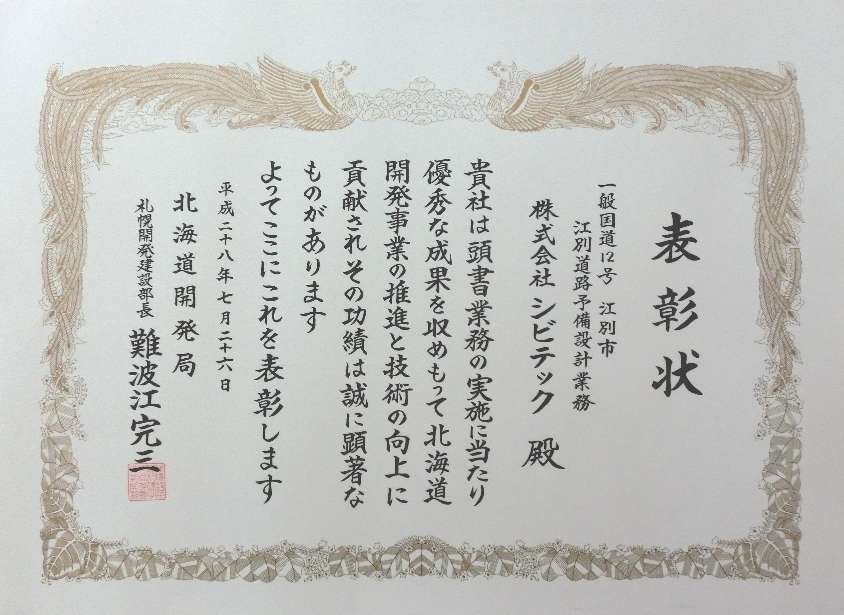 表彰状
一般国道12号 江別市
江別道路予備設計業務
株式会社 シビテック 殿
貴社は頭書業務の実施に当たり
優秀な成果を収めもって北海道
開発事業の推進と技術の向上に
貢献されその功績は誠に顕著な
ものがあります
よってここにこれを表彰します
平成二十八年七月二十六日
北海道開発局
札幌開発建設部長 難波江完三